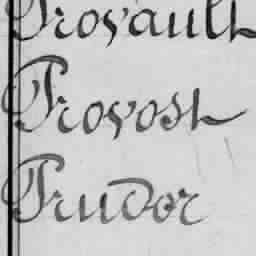 Provault
Provost
Prudor